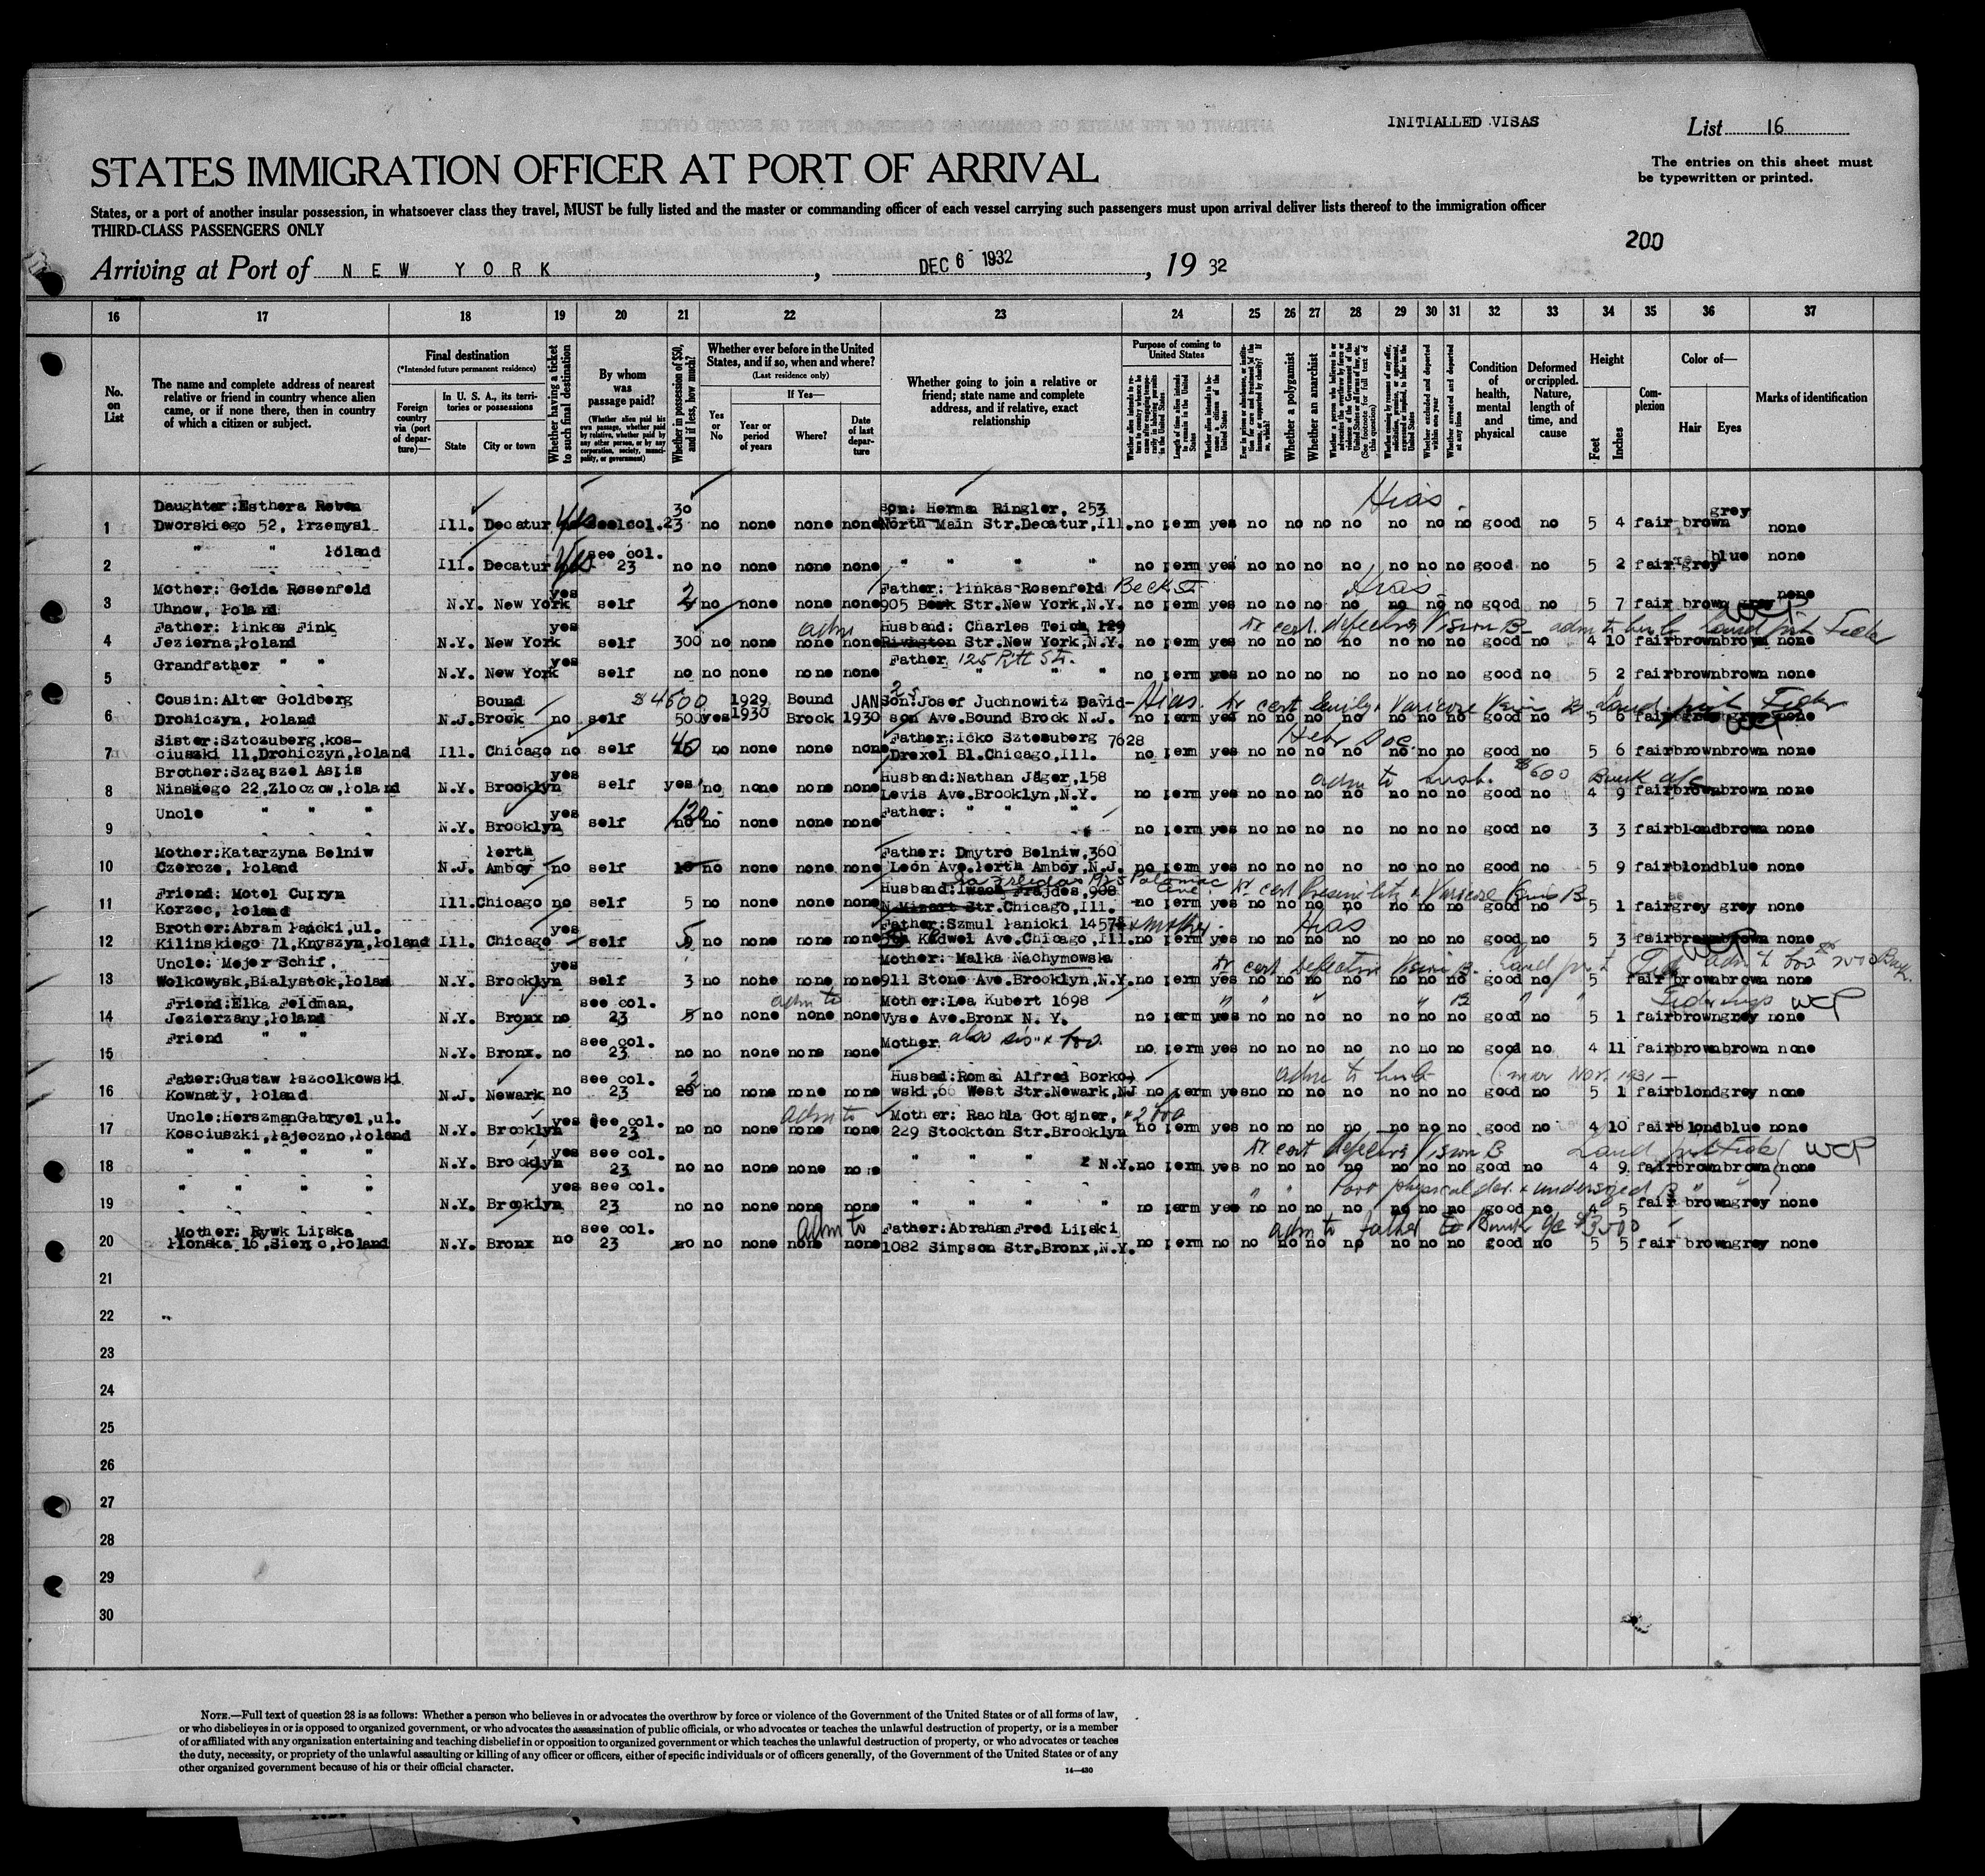 INITIALLED VISAS
List 16
STATES IMMIGRATION OFFICER AT PORT OF ARRIVAL
The entries on this sheet must
be typewritten or printed.
States, or a port of another insular possession, in whatsoever class they travel, MUST be fully listed and the master or commanding officer of each vessel carrying such passengers must upon arrival deliver lists thereof to the immigration officer
THIRD-CLASS PASSENGERS ONLY
200
Arriving at Port of NEW YORK, DEC 6 1932, 19 32
16 17 18 19 20 21 22 23 24 25 26 27 28 29 30 31 32 33 34 35 36 37
No. on List
The name and complete address of nearest relative or friend in country whence alien came, or if none there, then in country of which a citizen or subject.
Final destination
(*Intended future permanent residence)
Foreign country via (port of departure)—
In U. S. A., its territories or possessions
State
City or town
Whether having a ticket to such final destination
By whom was passage paid?
(Whether alien paid his own passage, whether paid by relative, whether paid by any other person, or by any corporation, society, municipality, or government)
Whether in possession of $50, and if less, how much?
Whether ever before in the United States, and if so, when and where?
(Last residence only)
Yes or No
If Yes—
Year or period of years
Where?
Date of last departure
Whether going to join a relative or friend; state name and complete address, and if relative, exact relationship
Purpose of coming to United States
Whether a polygamist
Whether an anarchist
Condition of health, mental and physical
Deformed or crippled. Nature, length of time, and cause
Height
Feet
Inches
Complexion
Color of—
Hair
Eyes
Marks of identification
1 Daughter:Esthera Reben Dworskiego 52, Przemysl Ill. Decatur Yes see col.23 30 no none none none Son: Herman Ringler, 253 North Main Str.Decatur,Ill. no perm yes no no no no no no no good no 5 4 fair brown grey none
Hias.
2 " " Poland Ill. Decatur Yes see col. 23 no no none none none " " " " no perm yes no no no no no no no good no 5 2 fair grey blue none
3 Mother: Golda Rosenfeld Uhnow, Poland N.Y. New York yes self 2 no none none none Father: Pinkas Rosenfeld Beck St. 905 Beck Str.New York,N.Y. no perm yes no no no no no no no good no 5 7 fair brown grey none
Hias
4 Father: Pinkas Fink Jezierna,Poland N.Y. New York yes self 300 no none none none Husband: Charles Teich 129 Rivington Str.New York,N.Y. no perm yes no no no no no no no good no 4 10 fair brown brown none
Dr cert. defective Vision B— adm to husb
5 Grandfather " " N.Y. New York yes self no no none none none Father 125 Pitt St. " " " no perm yes no no no no no no no good no 5 2 fair brown brown none
6 Cousin:Alter Goldberg Drohiczyn, Poland N.J. Bound Brook no self $4500 500 yes 1929 1930 Bound Brock JAN 1930 Son:Josef Juchnowitz David-son Ave.Bound Brock N.J. no perm yes no no no no no no no good no 5 6 fair grey none
Hias. Dr cert Senility & Varicose Veins B
7 Sister:Sztczuberg,kos-ciuszki 11,Drohiczyn,Poland Ill. Chicago no self 40 no none none none Father:Icko Sztemuberg 7628 Drexel Bl.Chicago,Ill. no perm yes no no no no no no no good no 5 6 fair brown brown none
8 Brother:Szapszel Aspis Ninskiego 22,Zloczow,Poland N.Y. Brooklyn yes self yes no none none none Husband:Nathan Jäger,158 Levis Ave.Brooklyn,N.Y. no perm yes no no no no no no no good no 4 9 fair brown brown none
adm to husb. $600 Bank a/c
9 Uncle " " " N.Y. Brooklyn yes self no no none none none Father: " " " no perm yes no no no no no no no good no 3 3 fair blond brown none
10 Mother:Katarzyna Belniw Czercze, Poland N.J. Perth Amboy no self 10 no none none none Father: Dmytro Belniw,360 León Ave.Perth Amboy,N.J. no perm yes no no no no no no no good no 5 9 fair blond blue none
11 Friend: Motel Cupryn Korzec, Poland Ill. Chicago no self 5 no none none none Husband: Frajdes,908 Str.Chicago,Ill. Potomac Ave. no perm yes no no no no no no no good no 5 1 fair grey grey none
Dr cert Senility & Varicose Veins B
12 Brother:Abram Panicki,ul. Kilinskiego 71,Knyszyn,Poland Ill. Chicago yes self 5 no none none none Father:Szmul Panicki 1457 & mother. Ave.Chicago,Ill. no perm yes no no no no no no no good no 5 3 fair brown brown none
Hias
13 Uncle: Mejer Schif, Wolkowysk,Bialystok,Poland N.Y. Brooklyn yes self 3 no none none none Mother: Malka Nachymowska 911 Stone Ave.Brooklyn,N.Y. no perm yes no no no no no no no good no 5 fair brown brown none
Dr cert Defective Vision B.
14 Friend:Elka Feldman, Jezierzany,Poland N.Y. Bronx no see col. 23 5 no none none none Mother:Lea Kubert 1698 Vyse Ave.Bronx N. Y. no perm yes no no no no no no no good no 5 1 fair brown grey none
adm to WCP
15 Friend " " N.Y. Bronx. no see col. 23 no no none none none Mother also sis no perm yes no no no no no no no good no 4 11 fair brown brown none
16 Father:Gustaw Pszcolkowski Kownaty, Poland N.J. Newark no see col. 23 no none none none Husbad:Roman Alfred Borko-wski,66 West Str.Newark,NJ no perm yes no no no no no no no good no 5 1 fair blond grey none
adm to husb (mar Nov. 1931—
17 Uncle:HerszmanGabryel,ul. Kosciuszki,Pajeczno,Poland N.Y. Brooklyn yes see col. 23 no no none none none Mother: Rachla Gotajner, 229 Stockton Str.Brooklyn no perm yes no no no no no no no good no 4 10 fair blond blue none
adm to
18 " " " " N.Y. Brooklyn yes see col. 23 no no none none none " " " N.Y. no perm yes no no no no no no no good no 4 9 fair brown brown none
Dr cert defective Vision B WCP
19 " " " " N.Y. Brooklyn yes see col. 23 no no none none none " " " " no perm yes no no no no no no no good no 4 5 fair brown grey none
" " Poor physical dev. & undersized B " "
20 Mother: Rywk Lipska Plonska 16,Sierpc,Poland N.Y. Bronx no see col. 23 no no none none none Father:Abraham Fred Lipski 1082 Simpson Str.Bronx,N.Y. no perm no no no no no no no no good no 5 5 fair brown grey none
adm to adm to father Bank a/c $3500
21
22
23
24
25
26
27
28
29
30
NOTE.—Full text of question 28 is as follows: Whether a person who believes in or advocates the overthrow by force or violence of the Government of the United States or of all forms of law,
or who disbelieves in or is opposed to organized government, or who advocates the assassination of public officials, or who advocates or teaches the unlawful destruction of property, or is a member
of or affiliated with any organization entertaining and teaching disbelief in or opposition to organized government or which teaches the unlawful destruction of property, or who advocates or teaches
the duty, necessity, or propriety of the unlawful assaulting or killing of any officer or officers, either of specific individuals or of officers generally, of the Government of the United States or of any
other organized government because of his or their official character.
14—430